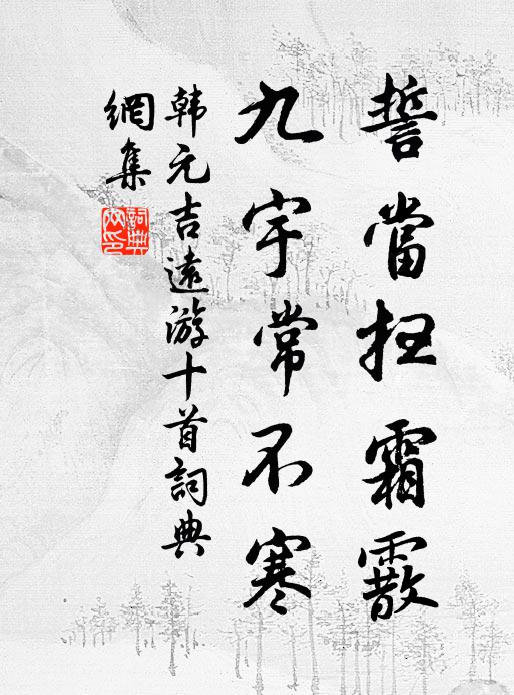 誓當扫霜霰
九宇常不寒
韩元吉遠游十首詞典
網集
詞典網印